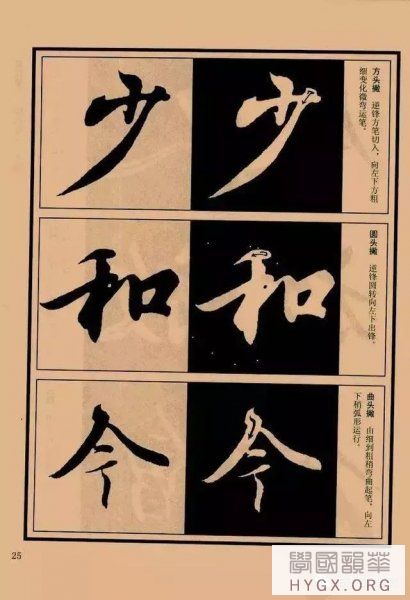 少 少
方头撇 逆锋方笔切入，向左下方粗
细变化微弯运笔。
和 和
圆头撇 逆锋圆转向左下出锋。
今 今
曲头撇 由细到粗稍弯曲起笔，向左
下稍弧形运行。
25
學國韻華
HYGX.ORG